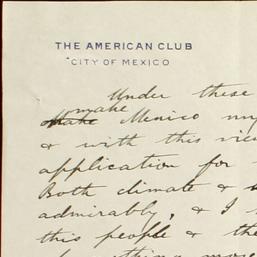 THE AMERICAN CLUB
CITY OF MEXICO
Under these
make
Make Mexico my
& with this view
application for
Both climate &
admirably, & I
this people & the
more